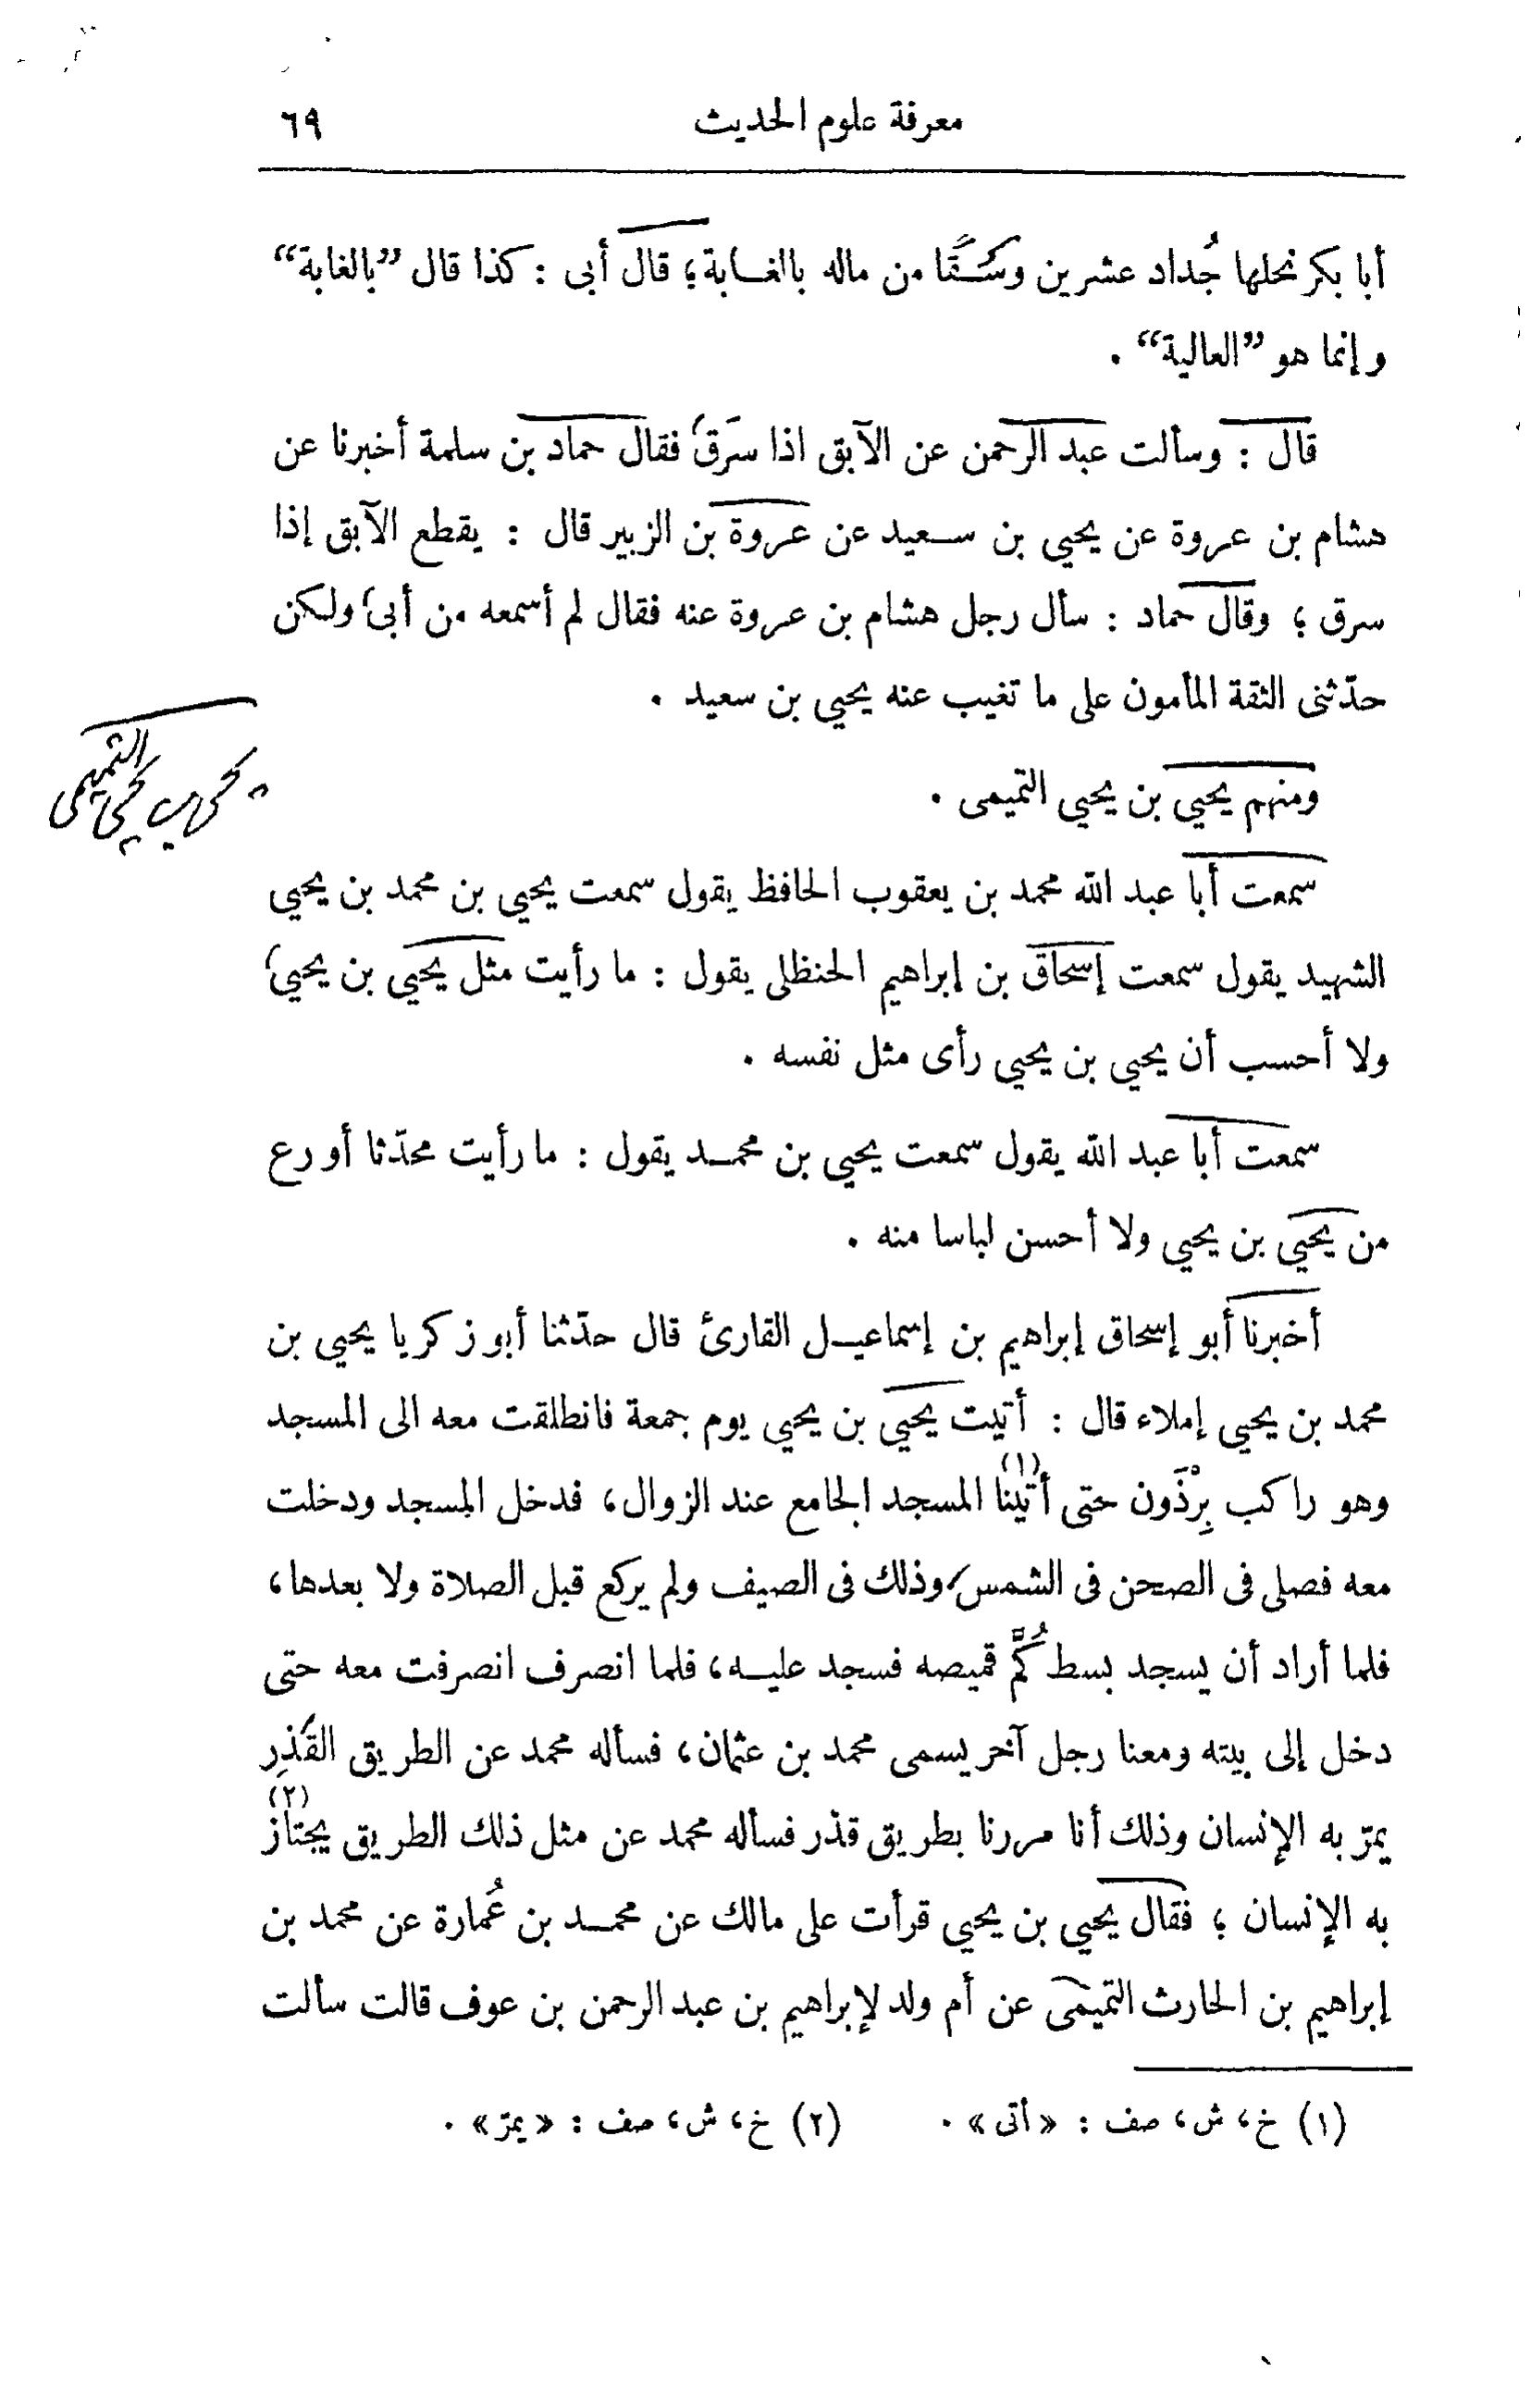 معرفة علوم الحديث ٦٩
أبا بكر نحلها جُداد عشرين وسْقًا من ماله بالغابة؛ قال أبى : كذا قال ”بالغابة“
وإنما هو ”العالية“ .
قال : وسألت عبد الرحمن عن الآبق اذا سَرَق؛ فقال حماد بن سلمة أخبرنا عن
هشام بن عروة عن يحيي بن سعيد عن عروة بن الزبير قال : يقطع الآبق إذا
سرق ؛ وقال حماد : سأل رجل هشام بن عروة عنه فقال لم أسمعه من أبى، ولكن
حدّثنى الثقة المأمون على ما تغيب عنه يحيي بن سعيد .
ومنهم يحيي بن يحيي التميمى .
يحيي التميمى
سمعت أبا عبد الله محمد بن يعقوب الحافظ يقول سمعت يحيي بن محمد بن يحيي
الشهيد يقول سمعت إسحاق بن إبراهيم الحنظلى يقول : ما رأيت مثل يحيي بن يحيي،
ولا أحسب أن يحيي بن يحيي رأى مثل نفسه .
سمعت أبا عبد الله يقول سمعت يحيي بن محمد يقول : ما رأيت محدّثا أورع
من يحيي بن يحيي ولا أحسن لباسا منه .
أخبرنا أبو إسحاق إبراهيم بن إسماعيل القارئ قال حدّثنا أبو زكريا يحيي بن
محمد بن يحيي إملاء قال : أتيت يحيي بن يحيي يوم جمعة فانطلقت معه الى المسجد
وهو راكب بِرْذَون حتى أتينا (١) المسجد الجامع عند الزوال، فدخل المسجد ودخلت
معه فصلى فى الصحن فى الشمس، وذلك فى الصيف ولم يركع قبل الصلاة ولا بعدها،
فلما أراد أن يسجد بسط كُمَّ قميصه فسجد عليه، فلما انصرف انصرفت معه حتى
دخل إلى بيته ومعنا رجل آخر يسمى محمد بن عثمان، فسأله محمد عن الطريق القَذِر
يمرّ به الإنسان وذلك أنا مررنا بطريق قذر فسأله محمد عن مثل ذلك الطريق يجتاز (٢)
به الإنسان ؛ فقال يحيي بن يحيي قرأت على مالك عن محمد بن عُمارة عن محمد بن
إبراهيم بن الحارث التميمى عن أم ولد لإبراهيم بن عبد الرحمن بن عوف قالت سألت
(١) خ، ش، صف : «أتى» . (٢) خ، ش، صف : «يمرّ» .